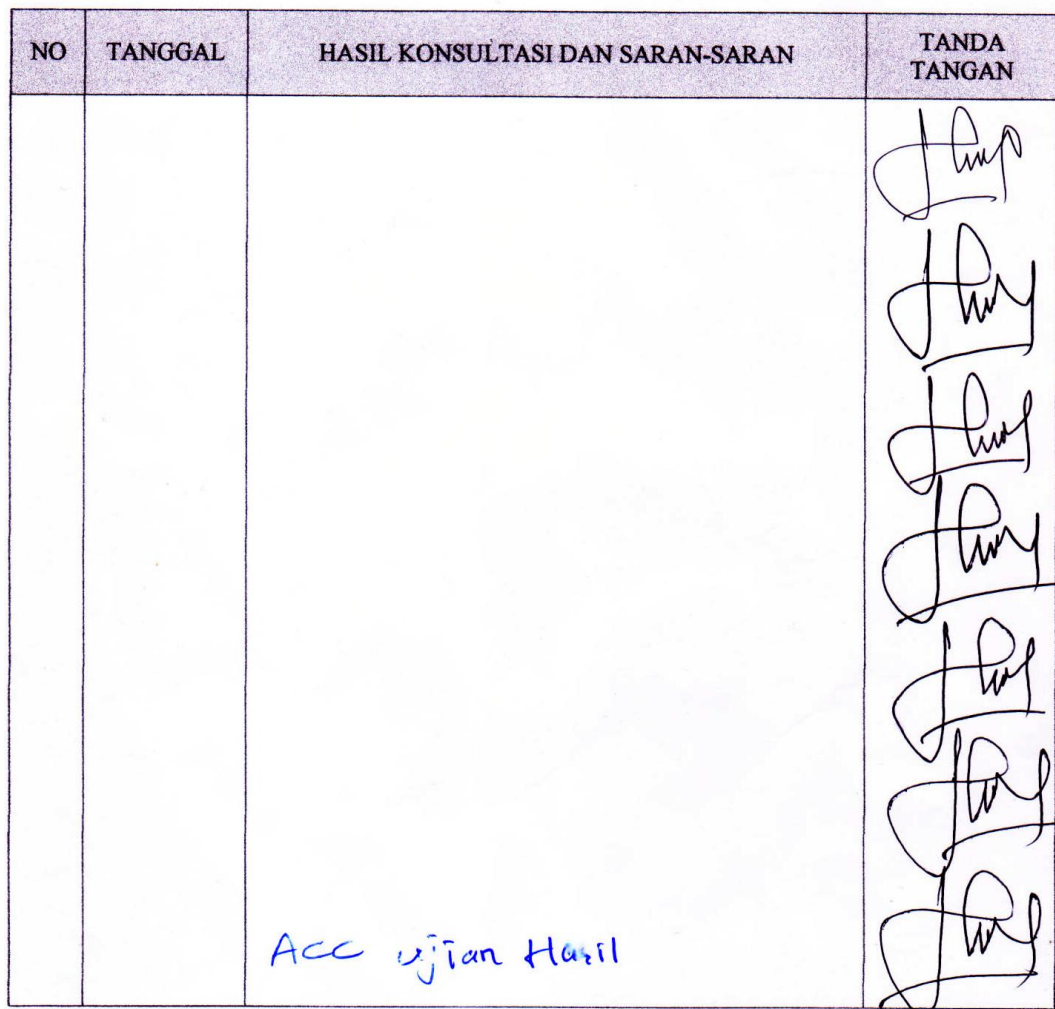 NO TANGGAL HASIL KONSULTASI DAN SARAN-SARAN TANDA TANGAN
ACC ujian Hasil